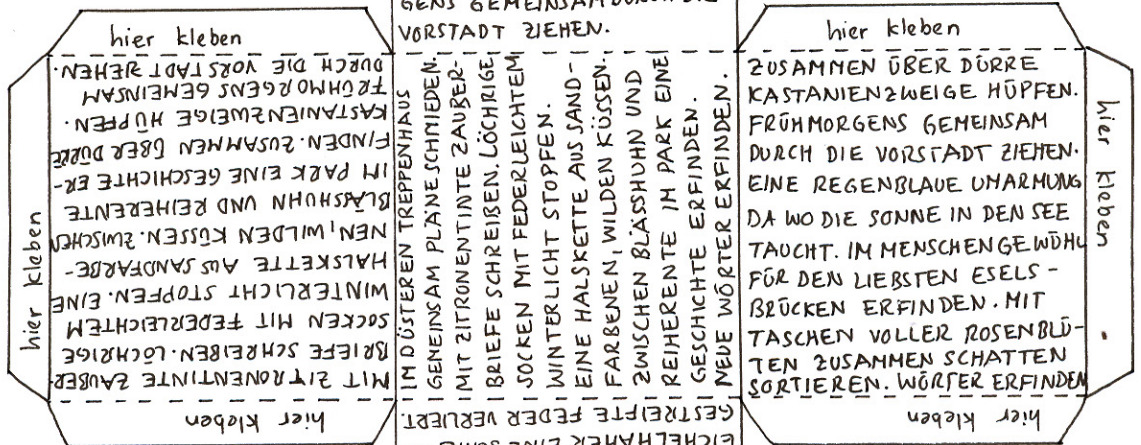 GENS GEMEINSAM DURCH DIE
VORSTADT ZIEHEN.
hier kleben
hier kleben
MIT ZITRONENTINTE ZAUBER-
BRIEFE SCHREIBEN. LÖCHRIGE
SOCKEN MIT FEDERLEICHTEM
WINTERLICHT STOPFEN. EINE
HALSKETTE AUS SANDFARBE-
NEN, WILDEN KÜSSEN. ZWISCHEN
BLÄSSHUHN UND REIHERENTE
IM PARK EINE GESCHICHTE ER-
FINDEN. ZUSAMMEN ÜBER DÜRRE
KASTANIENZWEIGE HÜPFEN.
FRÜHMORGENS GEMEINSAM
DURCH DIE VORSTADT ZIEHEN.
hier kleben
IM DÜSTEREN TREPPENHAUS
GEMEINSAM PLÄNE SCHMIEDEN.
MIT ZITRONENTINTE ZAUBER-
BRIEFE SCHREIBEN. LÖCHRIGE
SOCKEN MIT FEDERLEICHTEM
WINTERLICHT STOPFEN.
EINE HALSKETTE AUS SAND-
FARBENEN, WILDEN KÜSSEN.
ZWISCHEN BLÄSSHUHN UND
REIHERENTE IM PARK EINE
GESCHICHTE ERFINDEN.
NEUE WÖRTER ERFINDEN.
EICHELHÄHER EINE
GESTREIFTE FEDER VERLIERT.
hier kleben
ZUSAMMEN ÜBER DÜRRE
KASTANIENZWEIGE HÜPFEN.
FRÜHMORGENS GEMEINSAM
DURCH DIE VORSTADT ZIEHEN.
EINE REGENBLAUE UMARMUNG
DA WO DIE SONNE IN DEN SEE
TAUCHT. IM MENSCHENGEWÜHL
FÜR DEN LIEBSTEN ESELS-
BRÜCKEN ERFINDEN. MIT
TASCHEN VOLLER ROSENBLÜ-
TEN ZUSAMMEN SCHATTEN
SORTIEREN. WÖRTER ERFINDEN
hier kleben
hier kleben